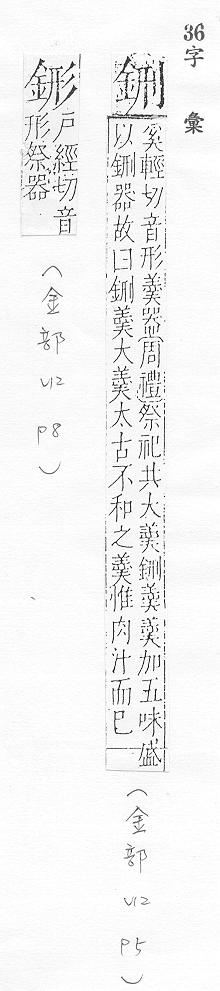 36
字彙
鉶
奚輕切音形羹器周禮祭祀共大羹鉶羹羹加五味盛
以鉶器故曰鉶羹大羹太古不和之羹惟肉汁而已
(金部 V12 P5)
鈃
戶經切音
形祭器
(金部 V12 P8)